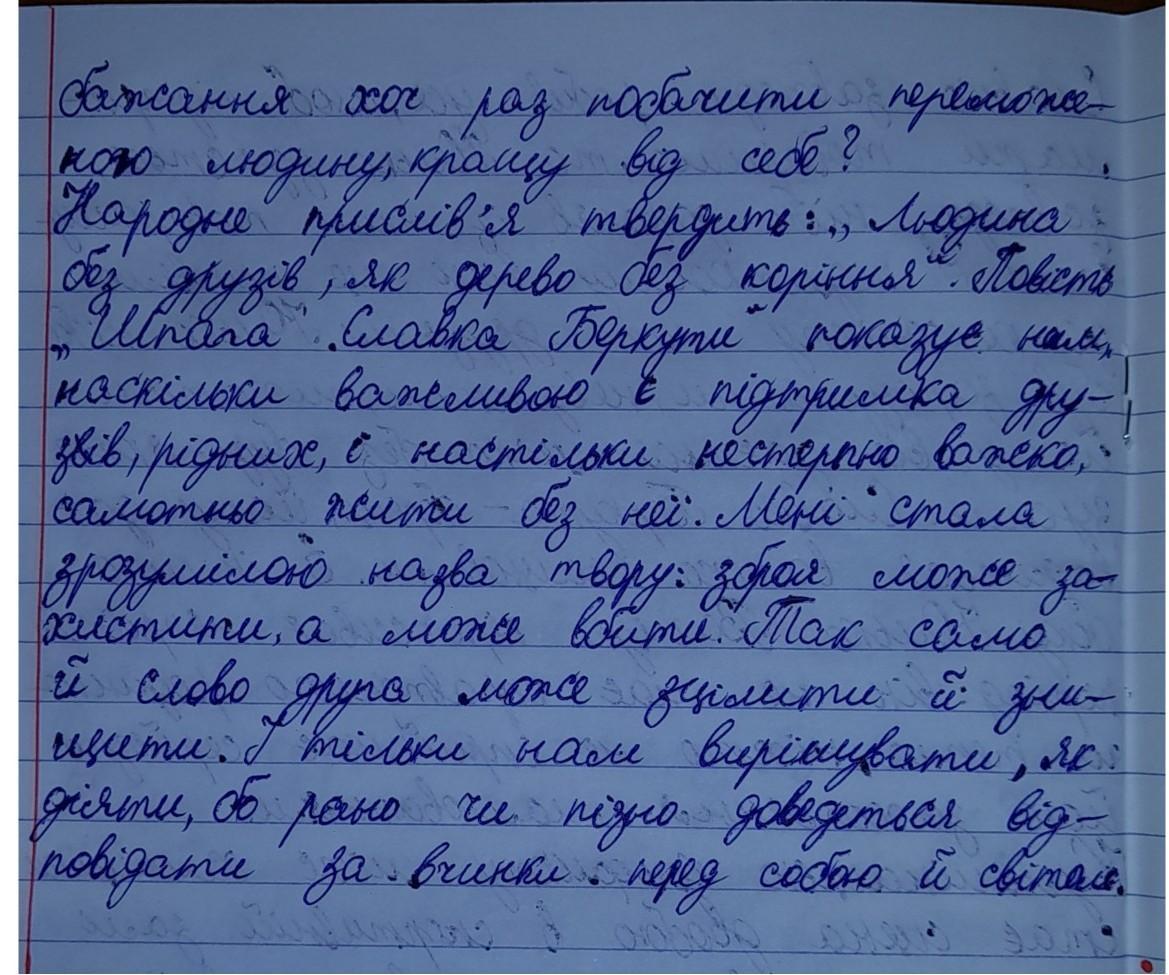 бажання хоч раз побачити переможе-
ною людину, кращу від себе?
Народне прислів'я твердить: „Людина
без друзів, як дерево без коріння". Повість
„Шпага Славка Беркути" показує нам,
наскільки важливою є підтримка дру-
зів, рідних, і настільки нестерпно важко,
самотньо жити без неї. Мені стала
зрозумілою назва твору: зброя може за-
хистити, а може вбити. Так само
й слово друга може зцілити й зни-
щити. І тільки нам вирішувати, як
діяти, бо рано чи пізно доведеться від-
повідати за вчинки перед собою й світом.